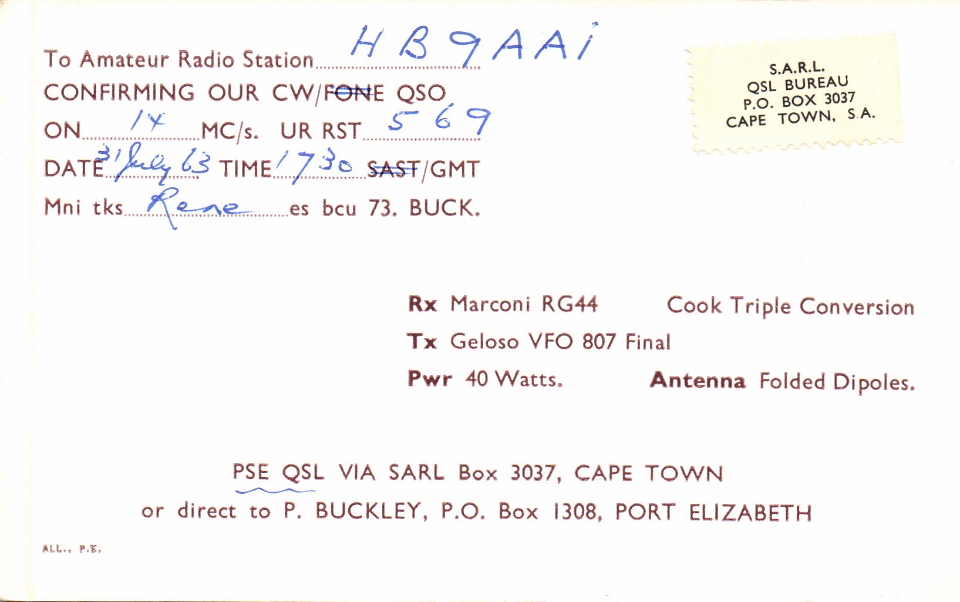 To Amateur Radio Station HB9AAi
CONFIRMING OUR CW/FONE QSO
ON 14 MC/s. UR RST 569
DATE 31 July 63 TIME 1730 SAST/GMT
Mni tks Rene es bcu 73. BUCK.
S.A.R.L.
QSL BUREAU
P.O. BOX 3037
CAPE TOWN, S.A.
Rx Marconi RG44 Cook Triple Conversion
Tx Geloso VFO 807 Final
Pwr 40 Watts. Antenna Folded Dipoles.
PSE QSL VIA SARL Box 3037, CAPE TOWN
or direct to P. BUCKLEY, P.O. Box 1308, PORT ELIZABETH
ALL., P.E.